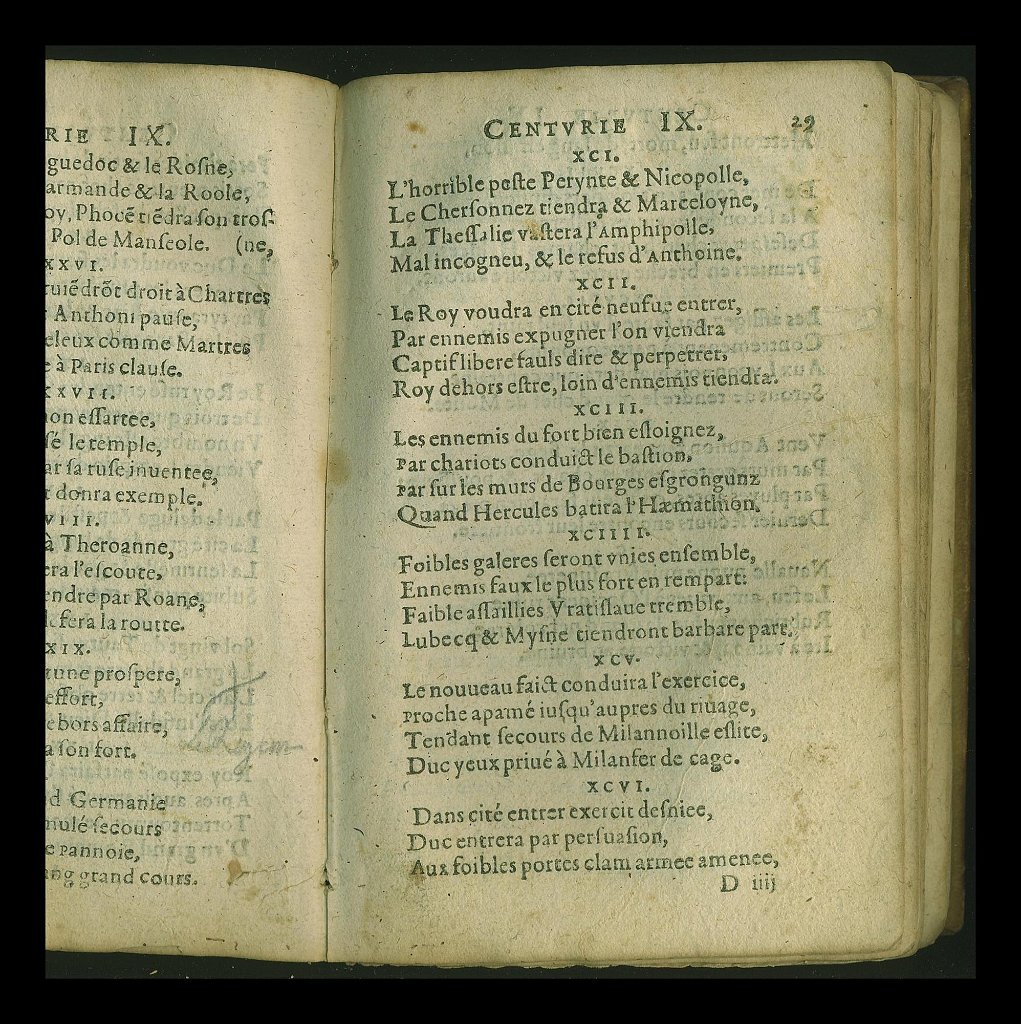 RIE IX.
guedoc & le Rosne,
armande & la Roole,
oy, Phocẽ tiẽdra son tros-
Pol de Manseole. (ne,
XXVI.
ruiẽdrõt droit à Chartres
Anthoni pause,
eleux comme Martres
e à Paris clause.
XXVII.
ion essartee,
sé le temple,
ar sa ruse inuentee,
t donra exemple.
VIII.
à Theroanne,
era l'escoute,
endre par Roane,
fera la routte.
XIX.
tune prospere,
effort,
ebors affaire,
a son fort.
d Germanie
mulé secours
e Pannoie,
ang grand cours.
CENTVRIE IX. 29
XCI.
L'horrible peste Perynte & Nicopolle,
Le Chersonnez tiendra & Marceloyne,
La Thessalie vastera l'Amphipolle,
Mal incogneu, & le refus d'Anthoine.
XCII.
Le Roy voudra en cité neufue entrer,
Par ennemis expugner l'on viendra
Captif libere fauls dire & perpetrer,
Roy dehors estre, loin d'ennemis tiendra.
XCIII.
Les ennemis du fort bien esloignez,
Par chariots conduict le bastion,
Par sur les murs de Bourges esgrongunz
Quand Hercules batira l'Hæmathion.
XCIIII.
Foibles galeres seront vnies ensemble,
Ennemis faux le plus fort en rempart:
Faible assaillies Vratislaue tremble,
Lubecq & Mysne tiendront barbare part.
XCV.
Le nouueau faict conduira l'exercice,
Proche apamé iusqu'aupres du riuage,
Tendant secours de Milannoille eslite,
Duc yeux priué à Milanfer de cage.
XCVI.
Dans cité entrer exercit desniee,
Duc entrera par persuasion,
Aux foibles portes clam armee amenee,
D iiij